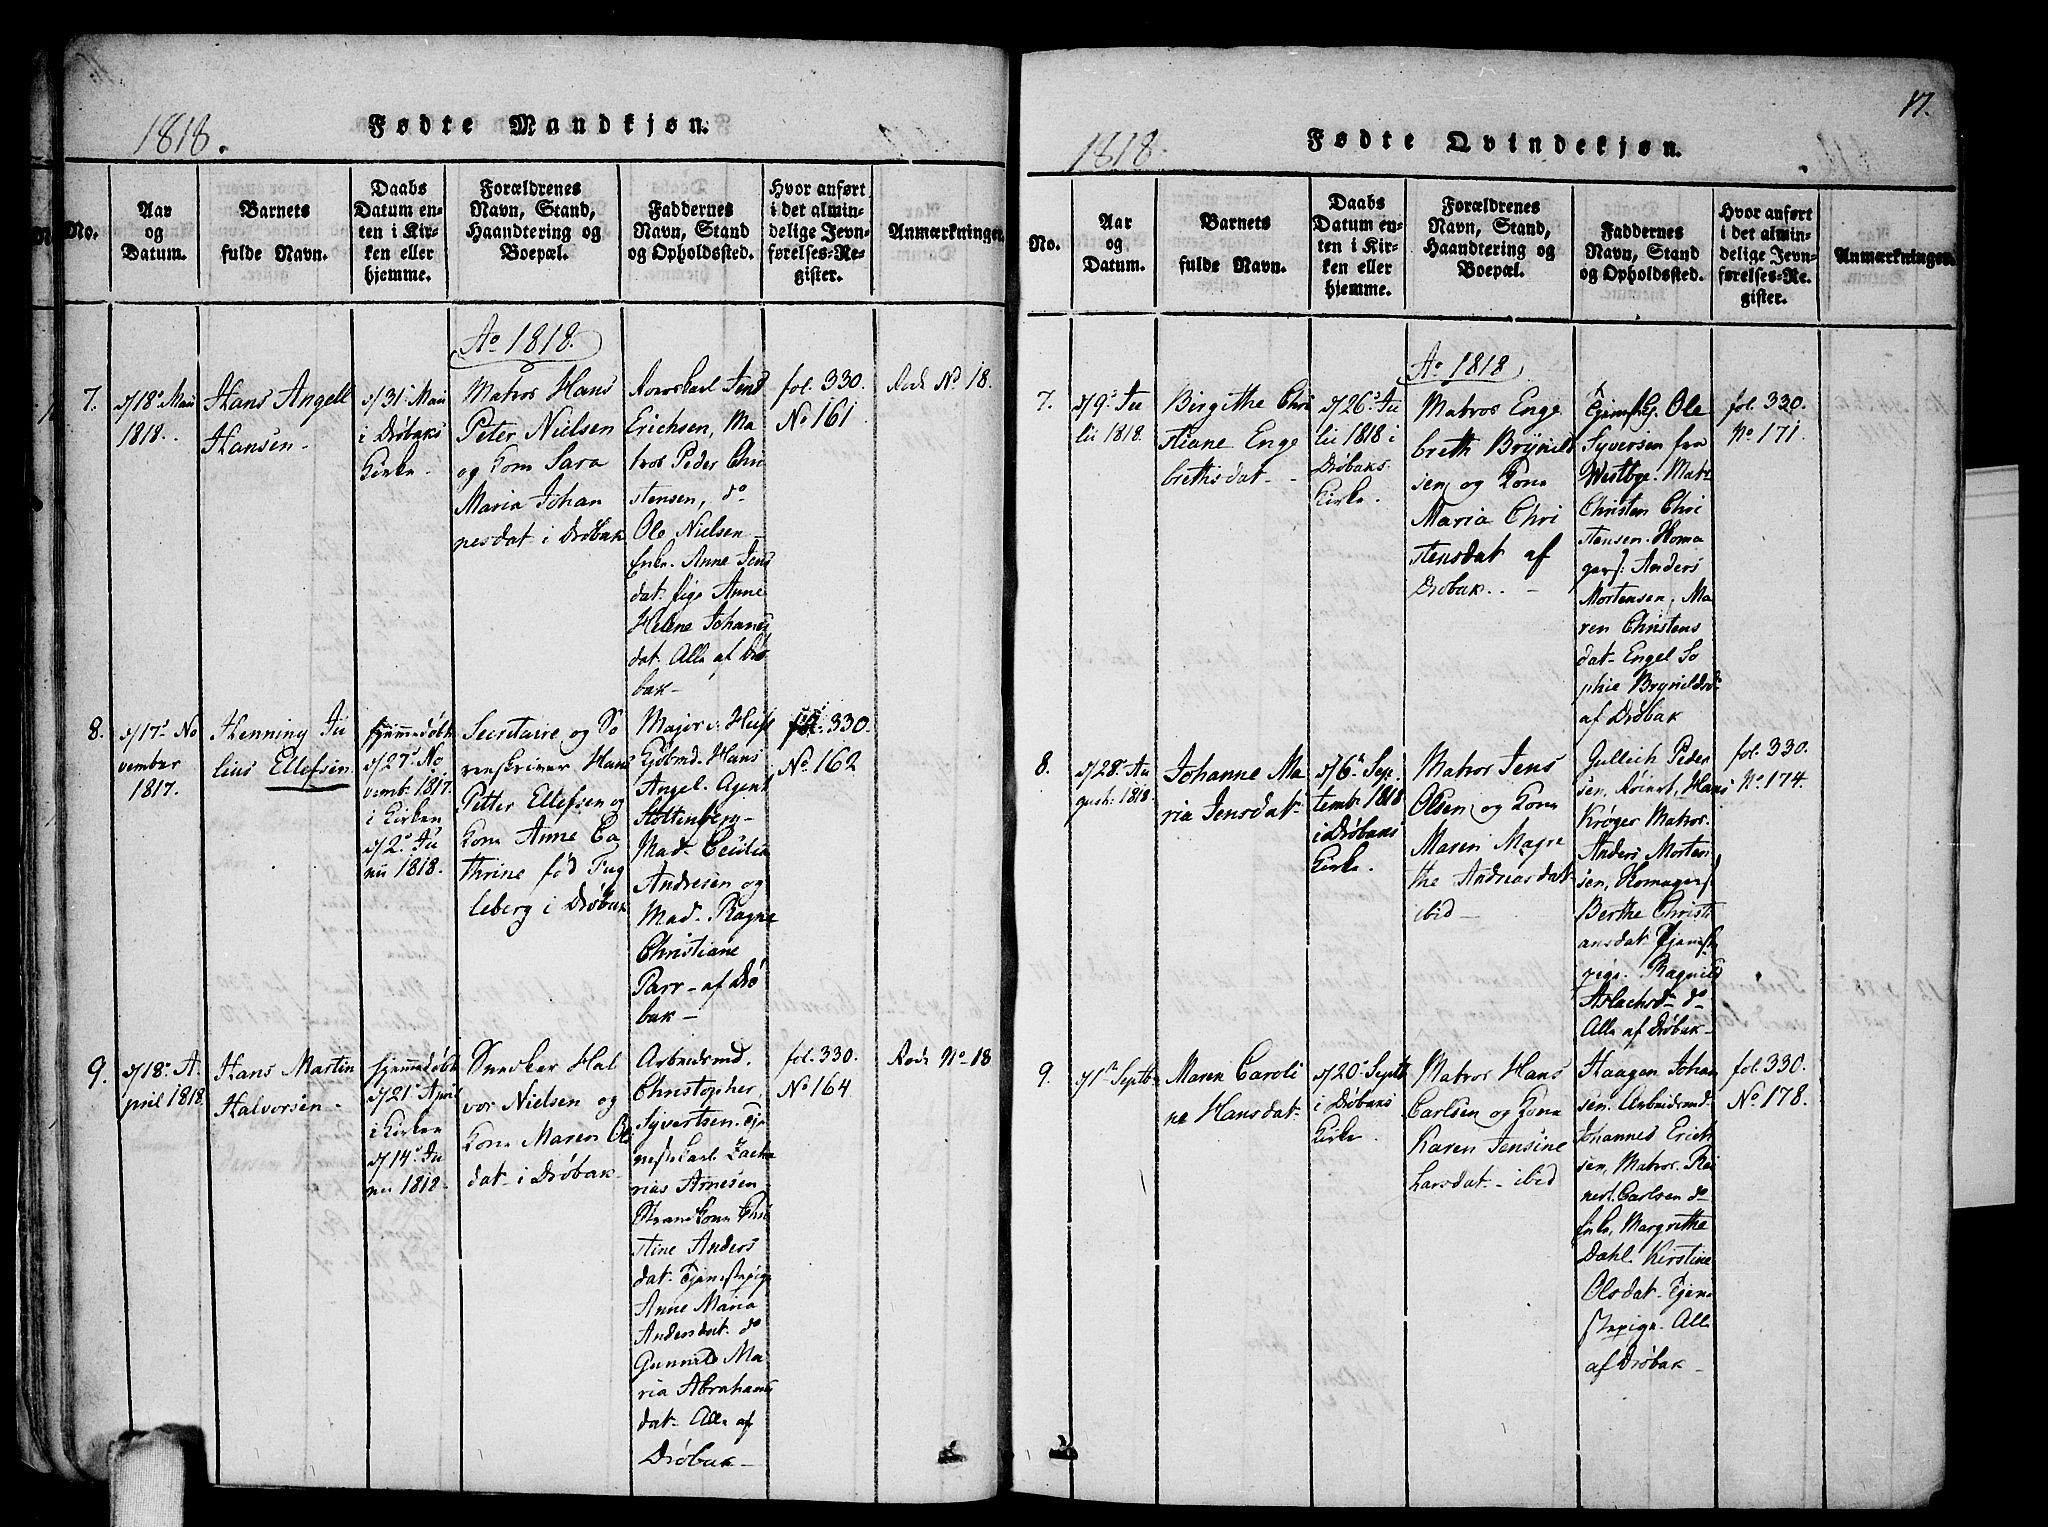 1818.
Fødte Mandkjøn.
No.
Aar
og
Datum.
Barnets
fulde Navn.
Daabs
Datum en-
ten i Kir-
ken eller
hjemme.
Forældrenes
Navn, Stand,
Haandtering og
Boepæl.
Faddernes
Navn, Stand
og Opholdssted.
Hvor anført
i det almin-
delige Jevn-
førelses-Re-
gister.
Anmærkninger.
Ao 1818.
7.
d/18 Mai
1818.
Hans Angell
Hansen
d/31 Maii
i Drøbaks
Kirke
Matros Hans
Peter Nielsen
og Kone Sara
Maria Johan
nesdat i Drøbak
Jens
Erichsen, Ma
tros Peder Chri
stensen, do
Ole Nielsen
Enke Anne Jens
dat. Pige Anne
Helene Johanes
dat. Alle af Drø
bak
fol. 330.
No 161
Rode No 18.
8.
d/17 No
vember
1817.
Henning Ju
lius Ellefsen
hjemmedøbt
d/27 No
vemb. 1817.
i Kirken
d/2 Ju
nii 1818.
Secretaire og So
renskriver Hans
Petter Ellefsen og
Kone Anne Ca
thrine fød Fug
leberg i Drøbak
Major v. Huss
Kjøbmd. Hans
Angel. Agent
Stoltenberg
Mad. Cecilia
Andresen og
Mad. Ragne
Christiane
Parr af Drø
bak
fol. 330.
No 162
9.
d/18 A
pril 1818.
Hans Martin
Halvorsen
hjemmedøbt
d/21 April
i Kirken
d/14 Ju
nii 1818.
Snedker Hal
vor Nielsen og
Kone Maren Ols
dat i Drøbak
Arbeidsmd.
Christopher
Syvertsen. Tje
nestekarl Zacha
rias Arnesen
Kone Chri
stine Anders
dat. Tjenestepige
Anne Maria
Andersdat. do
Gunnild Ma
ria Abrahams
dat. Alle af
Drøbak
fol. 330.
No 164
Rode No 18
17.
1818.
Fødte Qvindekjøn.
No.
Aar
og
Datum.
Barnets
fulde Navn.
Daabs
Datum en-
ten i Kir-
ken eller
hjemme.
Forældrenes
Navn, Stand,
Haandtering og
Boepæl.
Faddernes
Navn, Stand
og Opholdssted.
Hvor anført
i det almin-
delige Jevn-
førelses-Re-
gister.
Anmærkninger.
Ao 1818.
7.
d/9 Ju
lii 1818.
Birgithe Chri
stiane Enge
brethsdat
d/26 Ju
lii 1818 i
Drøbaks
Kirke.
Matros Enge
breth Brynild
sen og Kone
Maria Chri
stensdat af
Drøbak.
Ole
Syversen fra
Westbye. Matr.
Christen Chri
stensen.
Anders
Mortensen. Ma
ren Christens
dat. Engel So
phie Brynildsd.
af Drøbak
fol. 330.
No 171.
8.
d/28 Au
gust. 1818.
Johanne Ma
ria Jensdat
d/6 Sep.
tembr. 1818
i Drøbaks
Kirke.
Matros Jens
Olsen og Kone
Maren Magre
the Andreasdat
ibid
Gullich Peder
sen, Hans
Krøger Matros.
Anders Morten
sen,
Berthe Christi
ansdat Tjeneste
pige. Ragnild
Aslachsd. do
Alle af Drøbak
fol. 330.
No 174.
9.
d/1 Septbr
Maren Caroli
ne Hansdat
d/20 Septb
i Drøbaks
Kirke.
Matros Hans
Carlsen og Kone
Karen Jensine
Larsdat. ibid
Haagen Johan
sen. Arbeidsmd.
Johannes Erich
sen, Matros. Rei
nert Carlsen do
Enke, Margrethe
Dahl. Kirstine
Olsdat. Tjene
stepige. Alle
af Drøbak
fol. 330.
No 178.